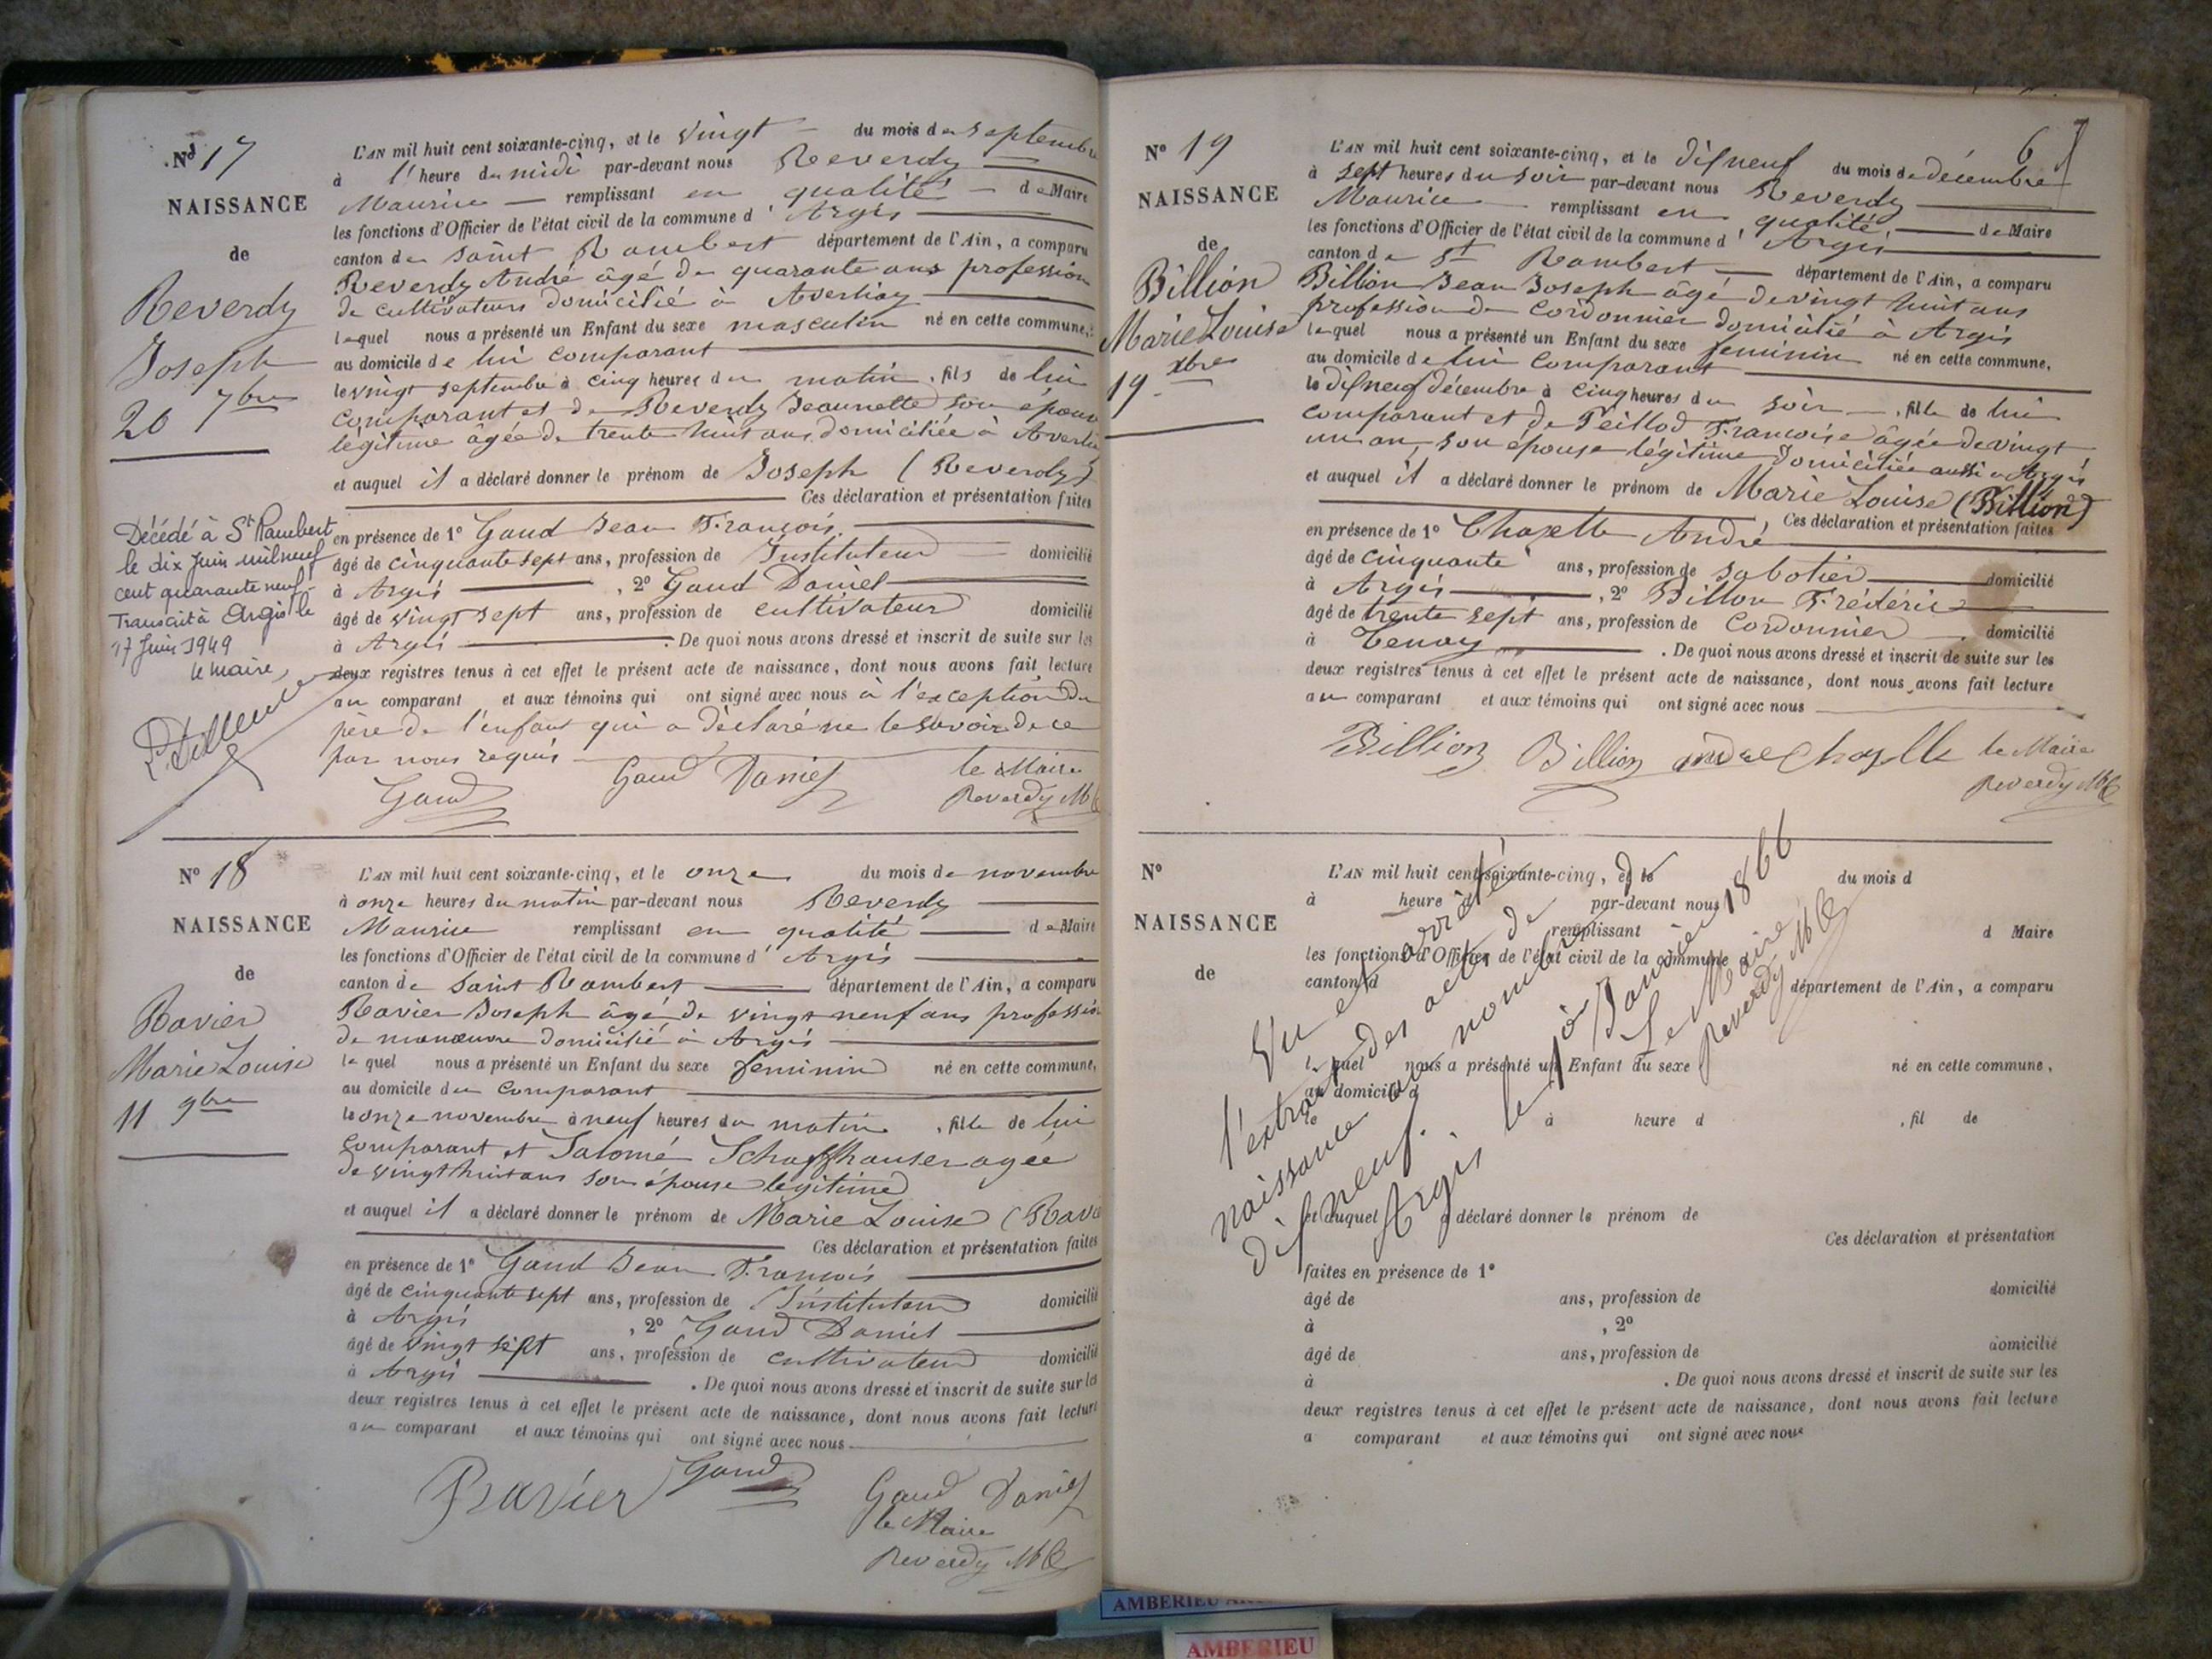 Nº 17
NAISSANCE
de
Reverdy
Joseph
20 7bre
L'AN mil huit cent soixante-cinq, et le vingt du mois de septembre
à l'heure du midi par-devant nous Reverdy
Maurice remplissant en qualité de Maire
les fonctions d'Officier de l'état civil de la commune d'Argis
canton de saint Rambert département de l'Ain, a comparu
Reverdy André âgé de quarante ans profession
de cultivateur domicilié à Averliaz
lequel nous a présenté un Enfant du sexe masculin né en cette commune,
au domicile de lui comparant
le vingt septembre à cinq heures du matin, fils de lui
comparant et de Reverdy Jeannette son épouse
légitime âgée de trente huit ans domiciliée à Averliaz
et auquel il a déclaré donner le prénom de Joseph (Reverdy)
Ces déclaration et présentation faites
en présence de 1º Gaud Jean François
âgé de cinquante sept ans, profession de Instituteur domicilié
à Argis, 2º Gaud Daniel
âgé de vingt sept ans, profession de cultivateur domicilié
à Argis. De quoi nous avons dressé et inscrit de suite sur les
deux registres tenus à cet effet le présent acte de naissance, dont nous avons fait lecture
au comparant et aux témoins qui ont signé avec nous à l'exception du
père de l'enfant qui a déclaré ne le savoir de ce
par nous requis
Gaud Gaud Daniel le Maire
Reverdy
Décédé à St Rambert
le dix Juin mil neuf
cent quarante neuf.
Transcrit à Argis le
17 Juin 1949
le maire,
Nº 18
NAISSANCE
de
Ravier
Marie Louise
11 9bre
L'AN mil huit cent soixante-cinq, et le onze du mois de novembre
à onze heures du matin par-devant nous Reverdy
Maurice remplissant en qualité de Maire
les fonctions d'Officier de l'état civil de la commune d'Argis
canton de Saint Rambert département de l'Ain, a comparu
Ravier Joseph âgé de vingt neuf ans profession
de manœuvre domicilié à Argis
lequel nous a présenté un Enfant du sexe féminin né en cette commune,
au domicile du comparant
le onze novembre à neuf heures du matin, fille de lui
comparant et Salomé Schaffhauser agée
de vingt huit ans son épouse légitime
et auquel il a déclaré donner le prénom de Marie Louise (Ravie
Ces déclaration et présentation faites
en présence de 1º Gaud Jean François
âgé de cinquante sept ans, profession de Instituteur domicilié
à Argis, 2º Gaud Daniel
âgé de vingt sept ans, profession de cultivateur domicilié
à Argis. De quoi nous avons dressé et inscrit de suite sur les
deux registres tenus à cet effet le présent acte de naissance, dont nous avons fait lecture
au comparant et aux témoins qui ont signé avec nous
Ravier Gaud Gaud Daniel
le Maire
Reverdy
6
Nº 19
NAISSANCE
de
Billion
Marie Louise
19 xbre
L'AN mil huit cent soixante-cinq, et le disneuf du mois de décembre
à sept heures du soir par-devant nous Reverdy
Maurice remplissant en qualité de Maire
les fonctions d'Officier de l'état civil de la commune d'Argis
canton de St Rambert département de l'Ain, a comparu
Billion Jean Joseph âgé de vingt huit ans
profession de Cordonnier domicilié à Argis
lequel nous a présenté un Enfant du sexe féminin né en cette commune,
au domicile de lui comparant
le disneuf décembre à cinq heures du soir, fille de lui
comparant et de Peillod Françoise âgée de vingt
un an, son épouse légitime domiciliée aussi à Argis
et auquel il a déclaré donner le prénom de Marie Louise (Billion)
Ces déclaration et présentation faites
en présence de 1º Chapelle André
âgé de cinquante ans, profession de sabotier domicilié
à Argis, 2º Billion Frédéric
âgé de trente sept ans, profession de Cordonnier domicilié
à Tenay. De quoi nous avons dressé et inscrit de suite sur les
deux registres tenus à cet effet le présent acte de naissance, dont nous avons fait lecture
au comparant et aux témoins qui ont signé avec nous
Billion Billion andre Chapelle le Maire
Reverdy
Nº
NAISSANCE
de
L'AN mil huit cent soixante-cinq, et le du mois d
à heure d par-devant nous
remplissant d Maire
les fonctions d'Officier de l'état civil de la commune d
canton d département de l'Ain, a comparu
lequel nous a présenté un Enfant du sexe né en cette commune,
au domicile d
le à heure d , fil de
et auquel a déclaré donner le prénom de
Ces déclaration et présentation
faites en présence de 1º
âgé de ans, profession de domicilié
à , 2º
âgé de ans, profession de domicilié
à . De quoi nous avons dressé et inscrit de suite sur les
deux registres tenus à cet effet le présent acte de naissance, dont nous avons fait lecture
a comparant et aux témoins qui ont signé avec nous
Vu et arrêté
l'extrait des actes de
naissance au nombre de
disneuf.
Argis le 1er Janvier 1866
Le Maire
Reverdy
AMBERIEU
AMBERIEU